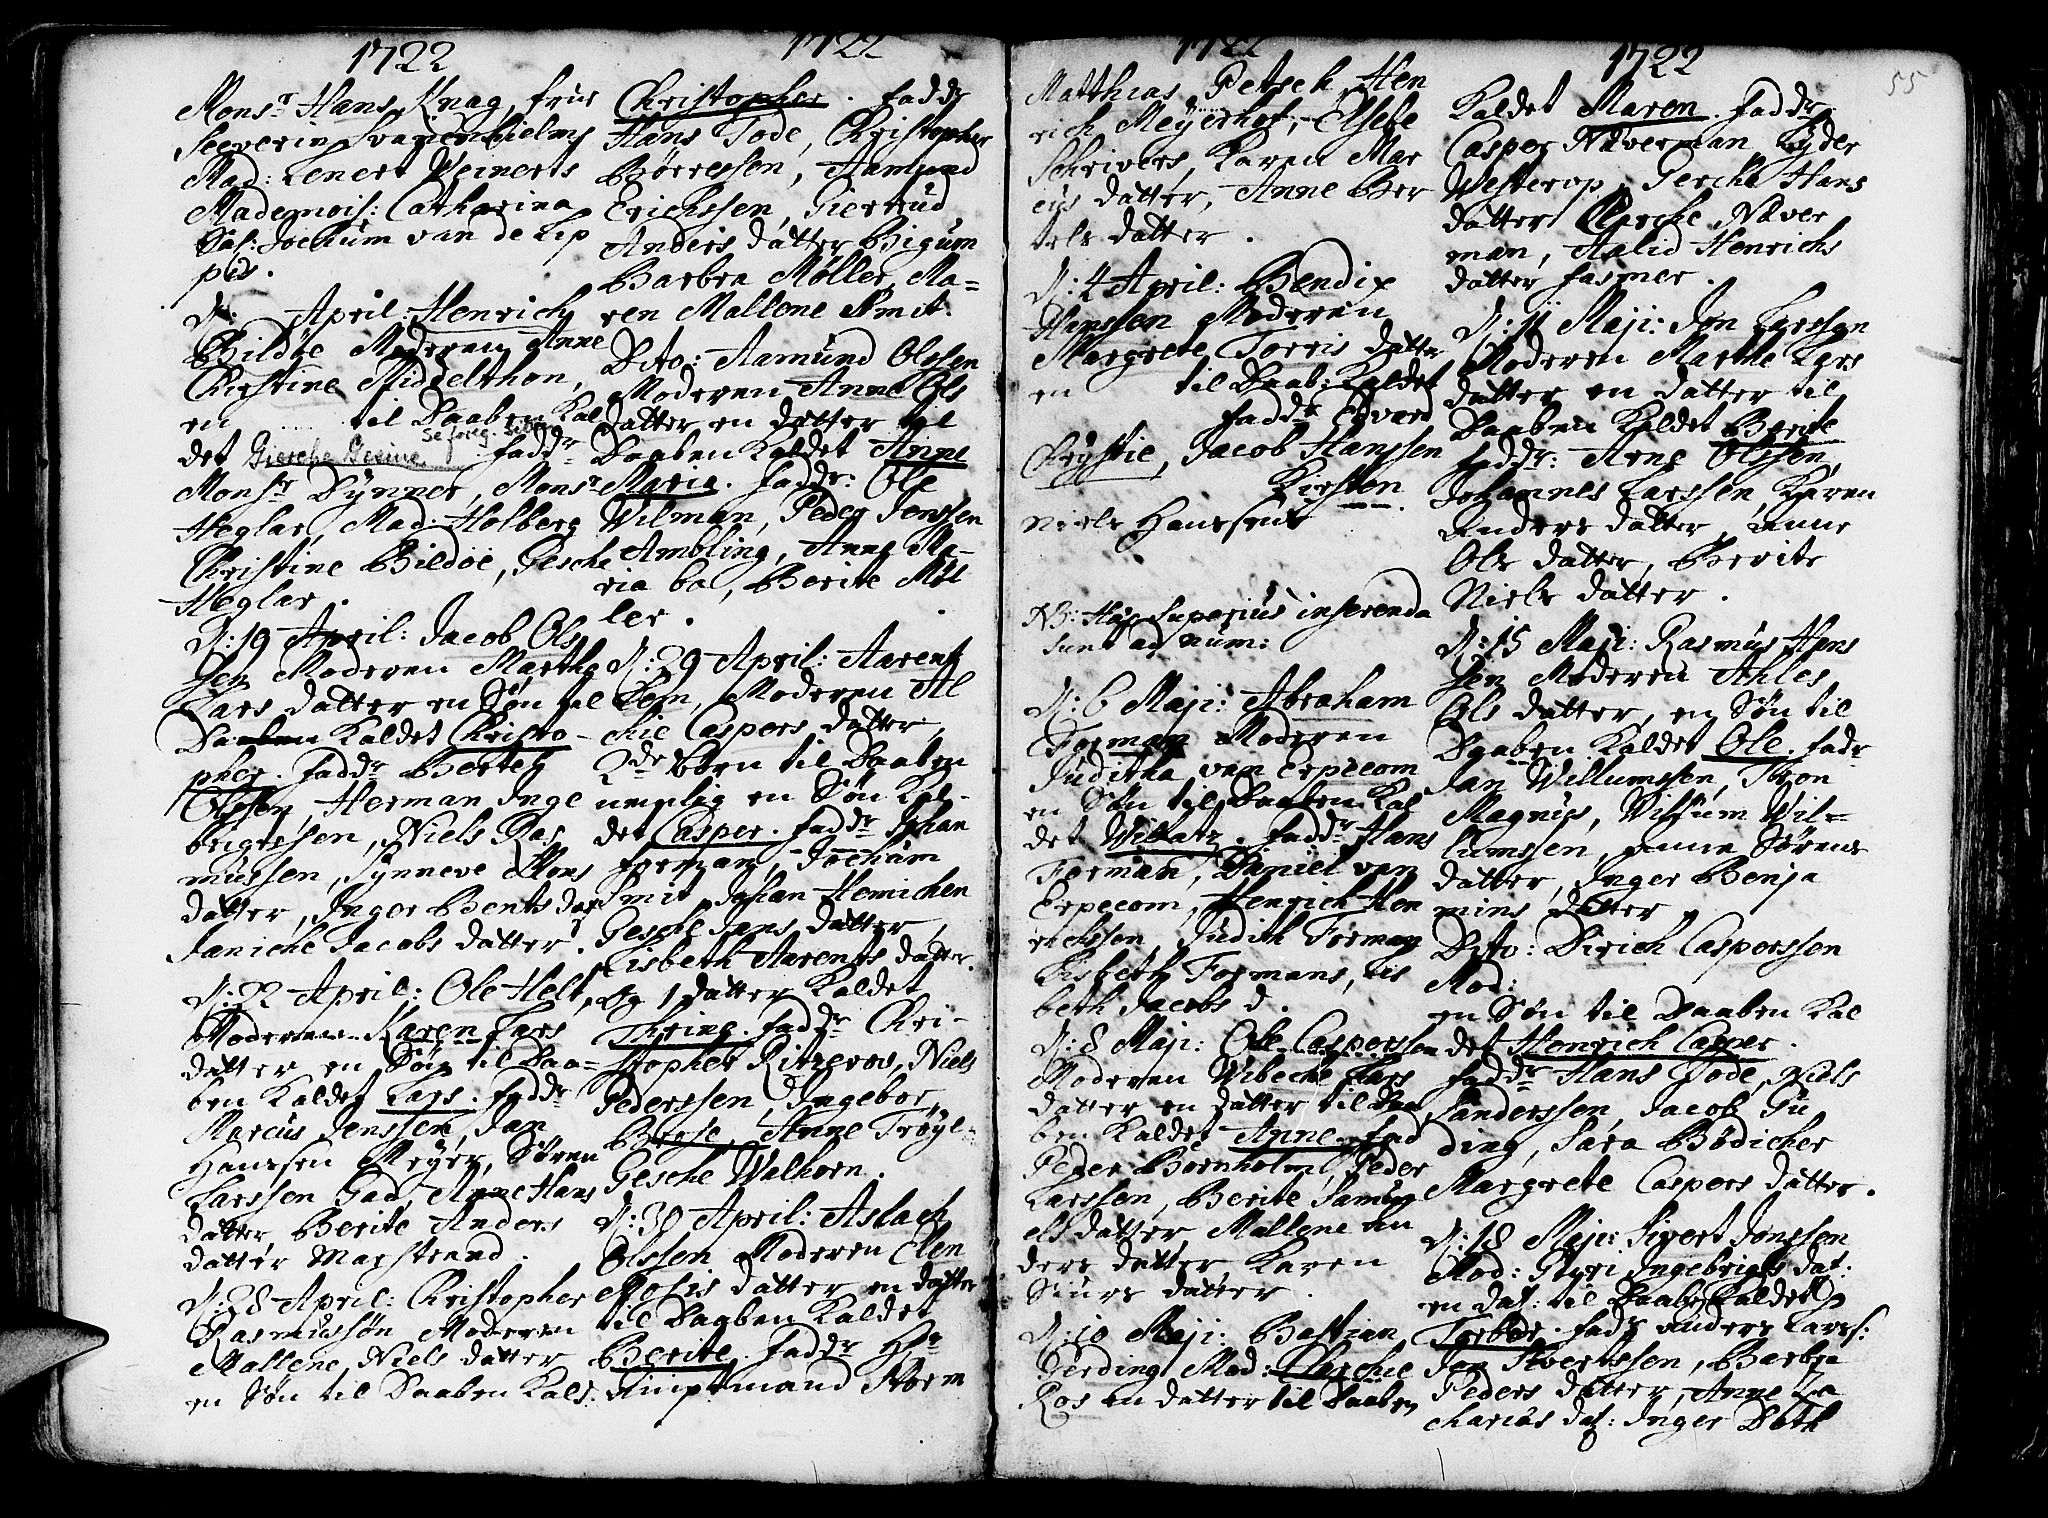 1722
Monsr Hans Knag, frue
Seeverin Svanenhielms
Mad: Lenert Weinerts
Mademois: Catharina
Sal: Jochum van de Lip
pes.
d: April: Henrich
Bildøe Moderen Anne
Christine Middelthon,
en til Daaben Kal
det Giesche Firine Faddr
Monsr Dynner, Monsr
Heglar, Mad: Holberg
Christine Bildøe, Gesche
Heglar.
d: 19 April: Jacob Ols
sen Moderen Marthe
Lars datter en Søn til
Daaben Kaldet Christo-
pher. Faddr Bertel
Olssen, Herman Inge
brigtssen, Niels Ras
mussen, Synneve Mons
datter, Inger Bents dat
Janiche Jacobs datter.
d: 22 April: Ole Helt,
Moderen Karen Lars
datter en Søn til Daa-
ben Kaldet Lars. Faddr
Marcus Jenssen, Jan
Hanssen Meyer, Søren
Larssen Gad, Anne Hans
datter Berite Anders
datter Marstrand.
d: 28 April: Christopher
Rasmussøn Moderen
Mallene Niels datter
en Søn til Daaben Kald:
1722
Christopher. Faddr
Hans Tode, Christopher
Børressen, Aamund
Erichssen, Giertrud
Anders datter Bigum
Barbra Møller, Ma-
ren Mallene Smit.
Dito: Aamund Olssen
Moderen Anne Ols
datter en datter til
Daaben Kaldet Anne
Maria. Faddr: Ole
Wilman, Peder Jenssen
Ambling, Anne Ma-
ria bal, Berite Møl
ler.
d: 29 April: Aarent
Bom, Moderen Al
chie Caspers datter,
2de Børn til Daaben
nemlig en Søn Kal-
det Casper. Faddr Johan
Forman, Jochum
Smit Johan Hemichen
Gesche Jans datter,
Lisbeth Aarents datter.
Og 1 datter Kaldet
Thring. Faddr Chri-
stopher Ritzerow, Niels
Pederssen, Ingebor
Brese, Anne Trøye
Gesche Walhorn.
d: 30 April: Aslach
Olssen Moderen Elen
Mosis datter en datter
til Daaben Kaldet
Berite. Faddr Hr
Amptmand Storm
1722
Matthias Petsch, Hen
rich Meyerhof, Elsebe
Schrivers, Karen Mar
cus datter, Anne Ber
tels datter.
d: 4 April: Bendix
Hanssen Moderen
Margrete Torris datter
en til Daab: Kaldet
Faddr Edvard
Chrystie, Jacob Hanssen
Kirsten
Niels Hanssens
NB: superius inserenda
sunt ad num:
d: 6 Maji: Abraham
Forman Moderen
Juditha van Erpecom
en Søn til Daaben Kal
det Willatz. Faddr Hans
Forman, Daniel van
Erpecom, Henrich Hen
richssen, Judith Forman
Lisbeth Formans, Lis
beth Jacobs d.
d: 8 Maji: Ole Casperssen
Moderen Wibeche Lars
datter en datter til Daa
ben Kaldet Anne. Fad
Peder Bornholm, Peder
Larssen, Berite Samu
els datter Mallene An
ders datter Karen
Siurs datter.
d: 10 Maji: Bastian
Gerding Mad: Larche
Ros en datter til Daaben
1722
55
Kaldet Maren. Faddr
Casper Näverman, Lyder
Westerop, Gesche Hans
datter Näver
man, Aalid Henrichs
datter Fasmer.
d: 11 Maji: Jon Larssen
Moderen Marthe Lars
datter en datter til
Daaben Kaldet Berite
Faddr: Arne Olssen,
Johannes Larssen, Karen
Anders datter, Anne
Ols datter, Berite
Niels datter.
d: 15 Maji: Rasmus Hans
sen Moderen Ahles
Ols datter, en Søn til
Daaben Kaldet Ole. Fadr
Jan Willumssen, Tron
Magnus, Willum Wil-
lumssen, Anne Sørens
datter, Inger Benja
mins datter.
Dito: Dirich Casperssen
Mod:
en Søn til Daaben Kal
det Henrich Casper.
Faddr Hans Tode, Niels
Sanderssen, Jacob Gu
ding, Sara Bødicher
Margrete Caspers datter.
d: 18 Maji: Sivert Jonssen
Mod: Gyri Ingebrigts dat:
en dat: til Daaben Kaldet
Torbor. Fadr Anders Larss:
Jon Sivertssen, Barbra
Peders datter, Anne Za
charias dat: Inger Dorth